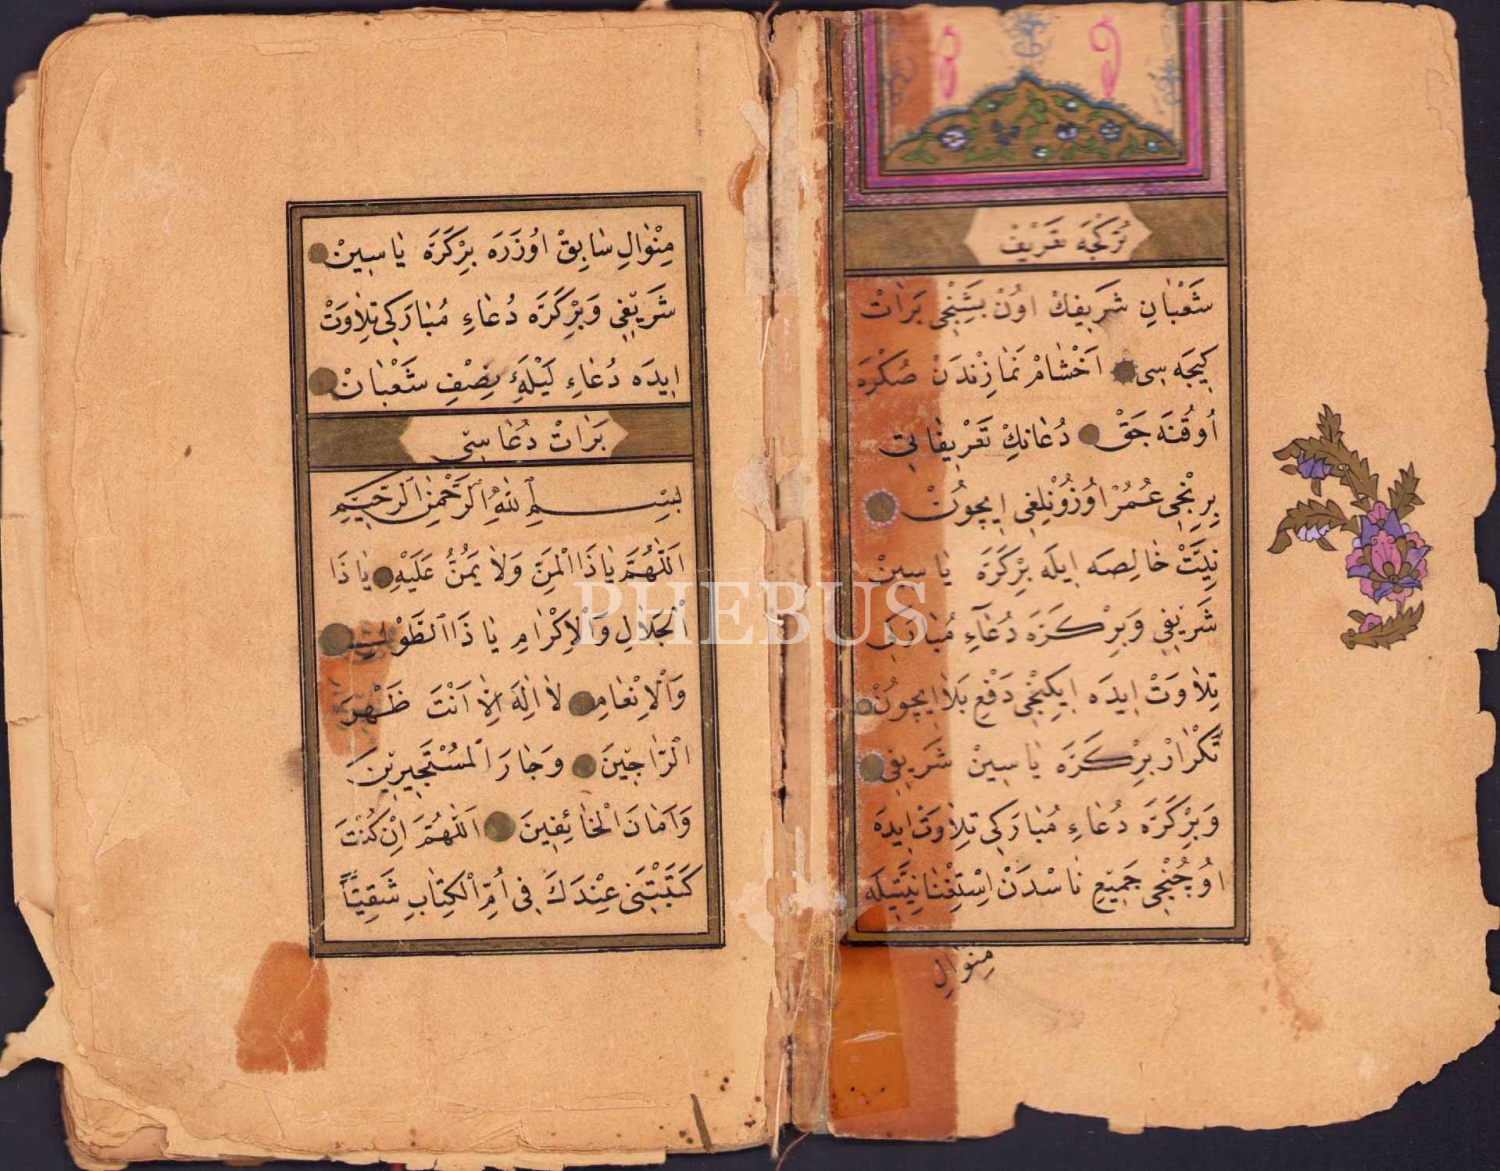 تُرْكْجَه تَعْرِيفْ
شَعْبَانِ شَرِيفِكْ اوُنْ بَشِنْجِى بَرَاتْ
كِيجَه سِى اَخْشَامْ نَمَازِنْدَنْ صُكْرَه
اُوقُنَه جَقْ دُعَانِكْ تَعْرِيفَاتِى
بِرِنْجِى عُمُرْ اوُزُونْلِغِى اِيچُونْ
نِيَّتْ خَالِصَه اِيلَه بِرْكَرَه يَاسِينْ
شَرِيفِى وَبِرْكَرَه دُعَآءِ مُبَارَكِى
تِلَاوَتْ اِيدَه اِيكِنْجِى دَفْعِ بَلَا اِيچُونْ
تَكْرَارْ بِرْكَرَه يَاسِينْ شَرِيفِى
وَبِرْكَرَه دُعَاءِ مُبَارَكِى تِلَاوَتْ اِيدَه
اوُچُنْجِى جَمِيعِ نَاسْدَنْ اِسْتِغْنَا نِيَّتِيلَه
مِنْوَالِ
مِنْوَالِ سَابِقْ اوُزَرَه بِرْكَرَه يَاسِينْ
شَرِيفِى وَبِرْكَرَه دُعَاءِ مُبَارَكِى تِلَاوَتْ
اِيدَه دُعَاءِ لَيْلَهءِ نِصْفِ شَعْبَانْ
بَرَاتْ دُعَاسِى
بِسْمِ اللهِ الرَّحْمٰنِ الرَّحِيمِ
اَللّٰهُمَّ يَا ذَا الْمَنِّ وَلَا يَمُنُّ عَلَيْهِ يَا ذَا
الْجَلَالِ وَالْاِكْرَامِ يَا ذَا الطَّوْلِ
وَالْاِنْعَامِ لَا اِلٰهَ اِلَّا اَنْتَ ظَهْرَ
الرَّاجِينَ وَجَارَ الْمُسْتَجِيرِينَ
وَاَمَانَ الْخَائِفِينَ اَللّٰهُمَّ اِنْ كُنْتَ
كَتَبْتَنِى عِنْدَكَ فِى اُمِّ الْكِتَابِ شَقِيًّا
PHEBUS